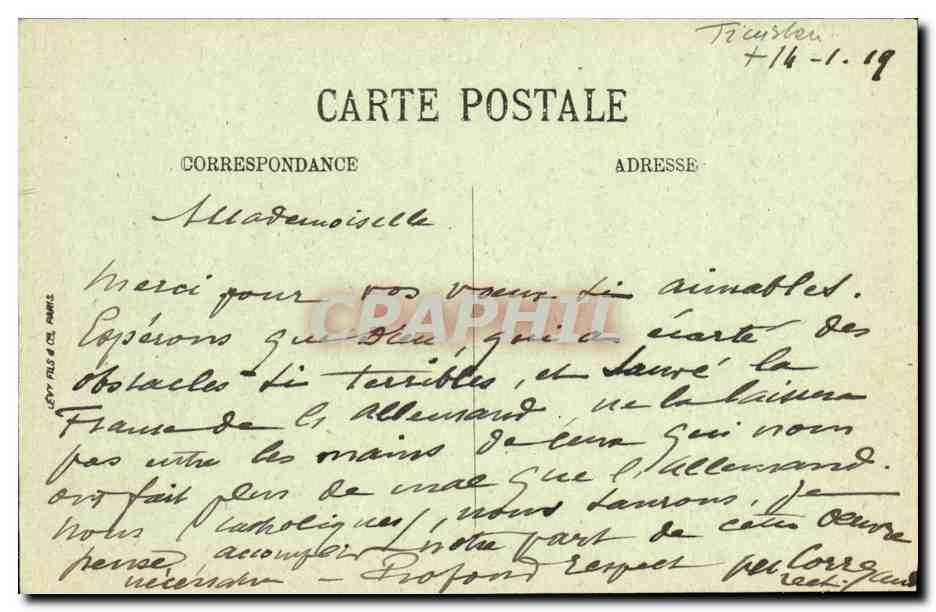 + 14-1. 19
CARTE POSTALE
CORRESPONDANCE
ADRESSE
Mademoiselle
Merci pour vos vœux si aimables.
Espérons que Dieu, qui a écarté des
obstacles si terribles, et sauvé la
France de l'Allemand ne la laissera
pas entre les mains de ceux qui nous
ont fait plus de mal que l'Allemand.
nous (catholiques), nous saurons, je
pense accomplir notre part de cette œuvre
nécessaire - Profond respect
LEVY FILS & Cie, PARIS
CPAPHIL